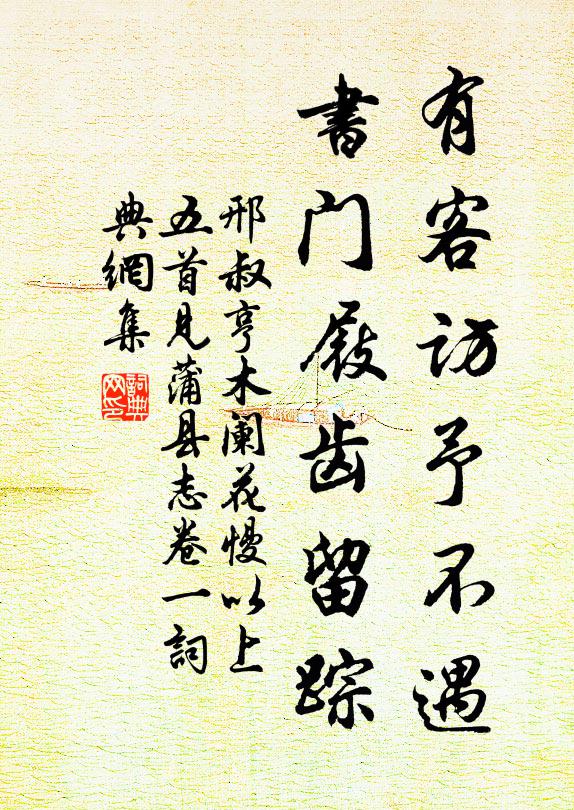 有客访予不遇
書门屐齿留踪
邢叔亨木阑花慢以上
五首见蒲县志卷一詞
典網集
詞典网印